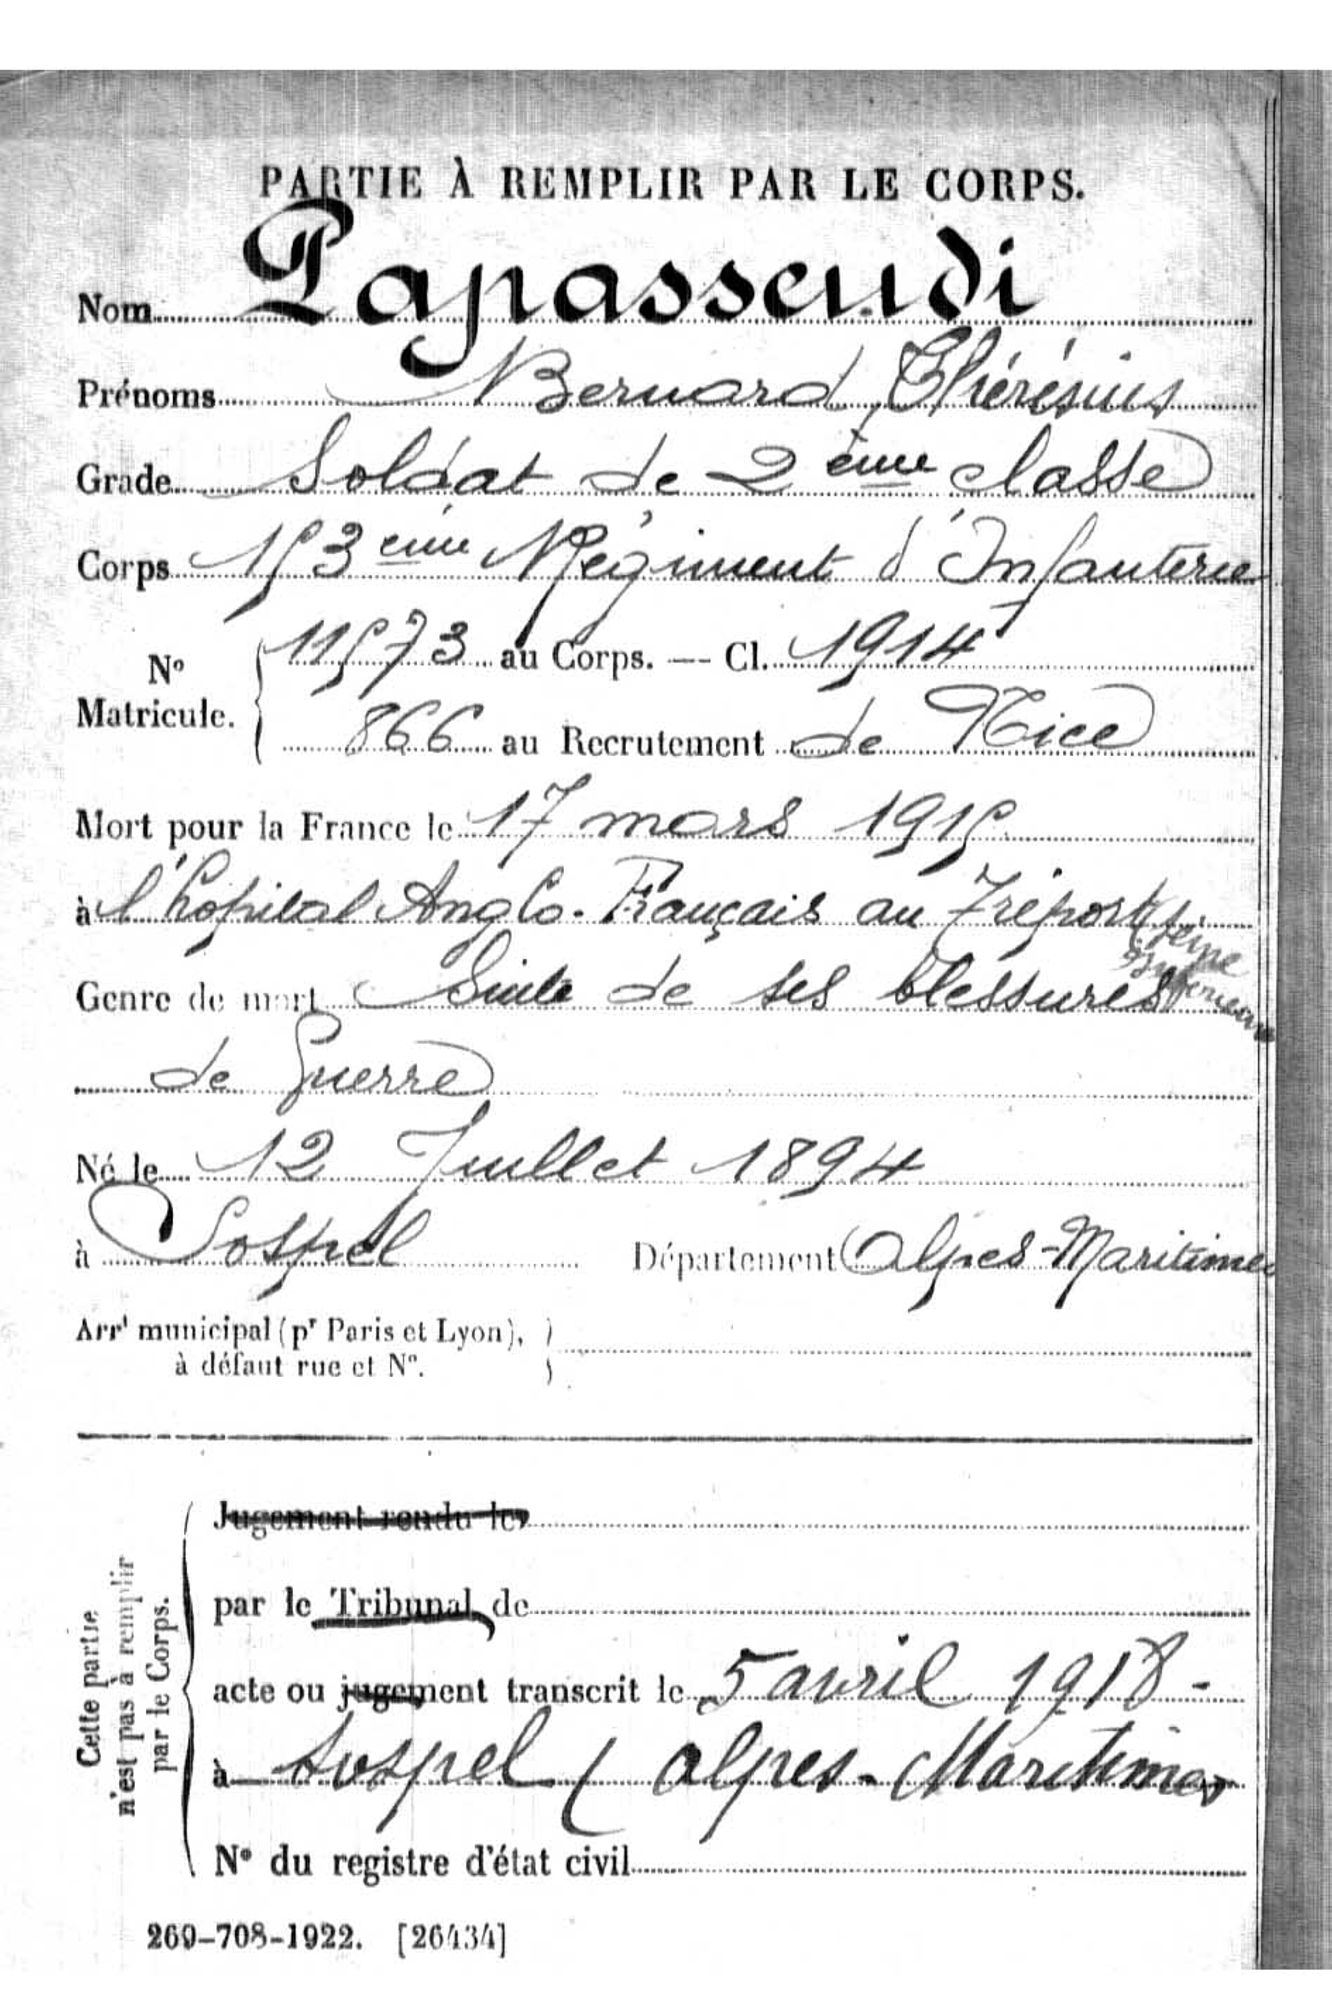 PARTIE À REMPLIR PAR LE CORPS.
Nom Papassendi
Prénoms Bernard, Thérésius
Grade Soldat de 2ème classe
Corps 153ème Régiment d'Infanterie
N° Matricule. 11573 au Corps. — Cl. 1914
866 au Recrutement de Nice
Mort pour la France le 17 mars 1915
à l'hopital Anglo-Français au Tréport (Seine
Inférieure
Genre de mort Suite de ses blessures
de Guerre
Né le 12 Juillet 1894
à Sospel Département Alpes-Maritimes
Arrt municipal (pr Paris et Lyon),
à défaut rue et N°.
Cette partie
n'est pas à remplir
par le Corps.
Jugement rendu le
par le Tribunal de
acte ou jugement transcrit le 5 avril 1918 -
à Sospel (Alpes-Maritimes
N° du registre d'état civil
269-708-1922. [26434]